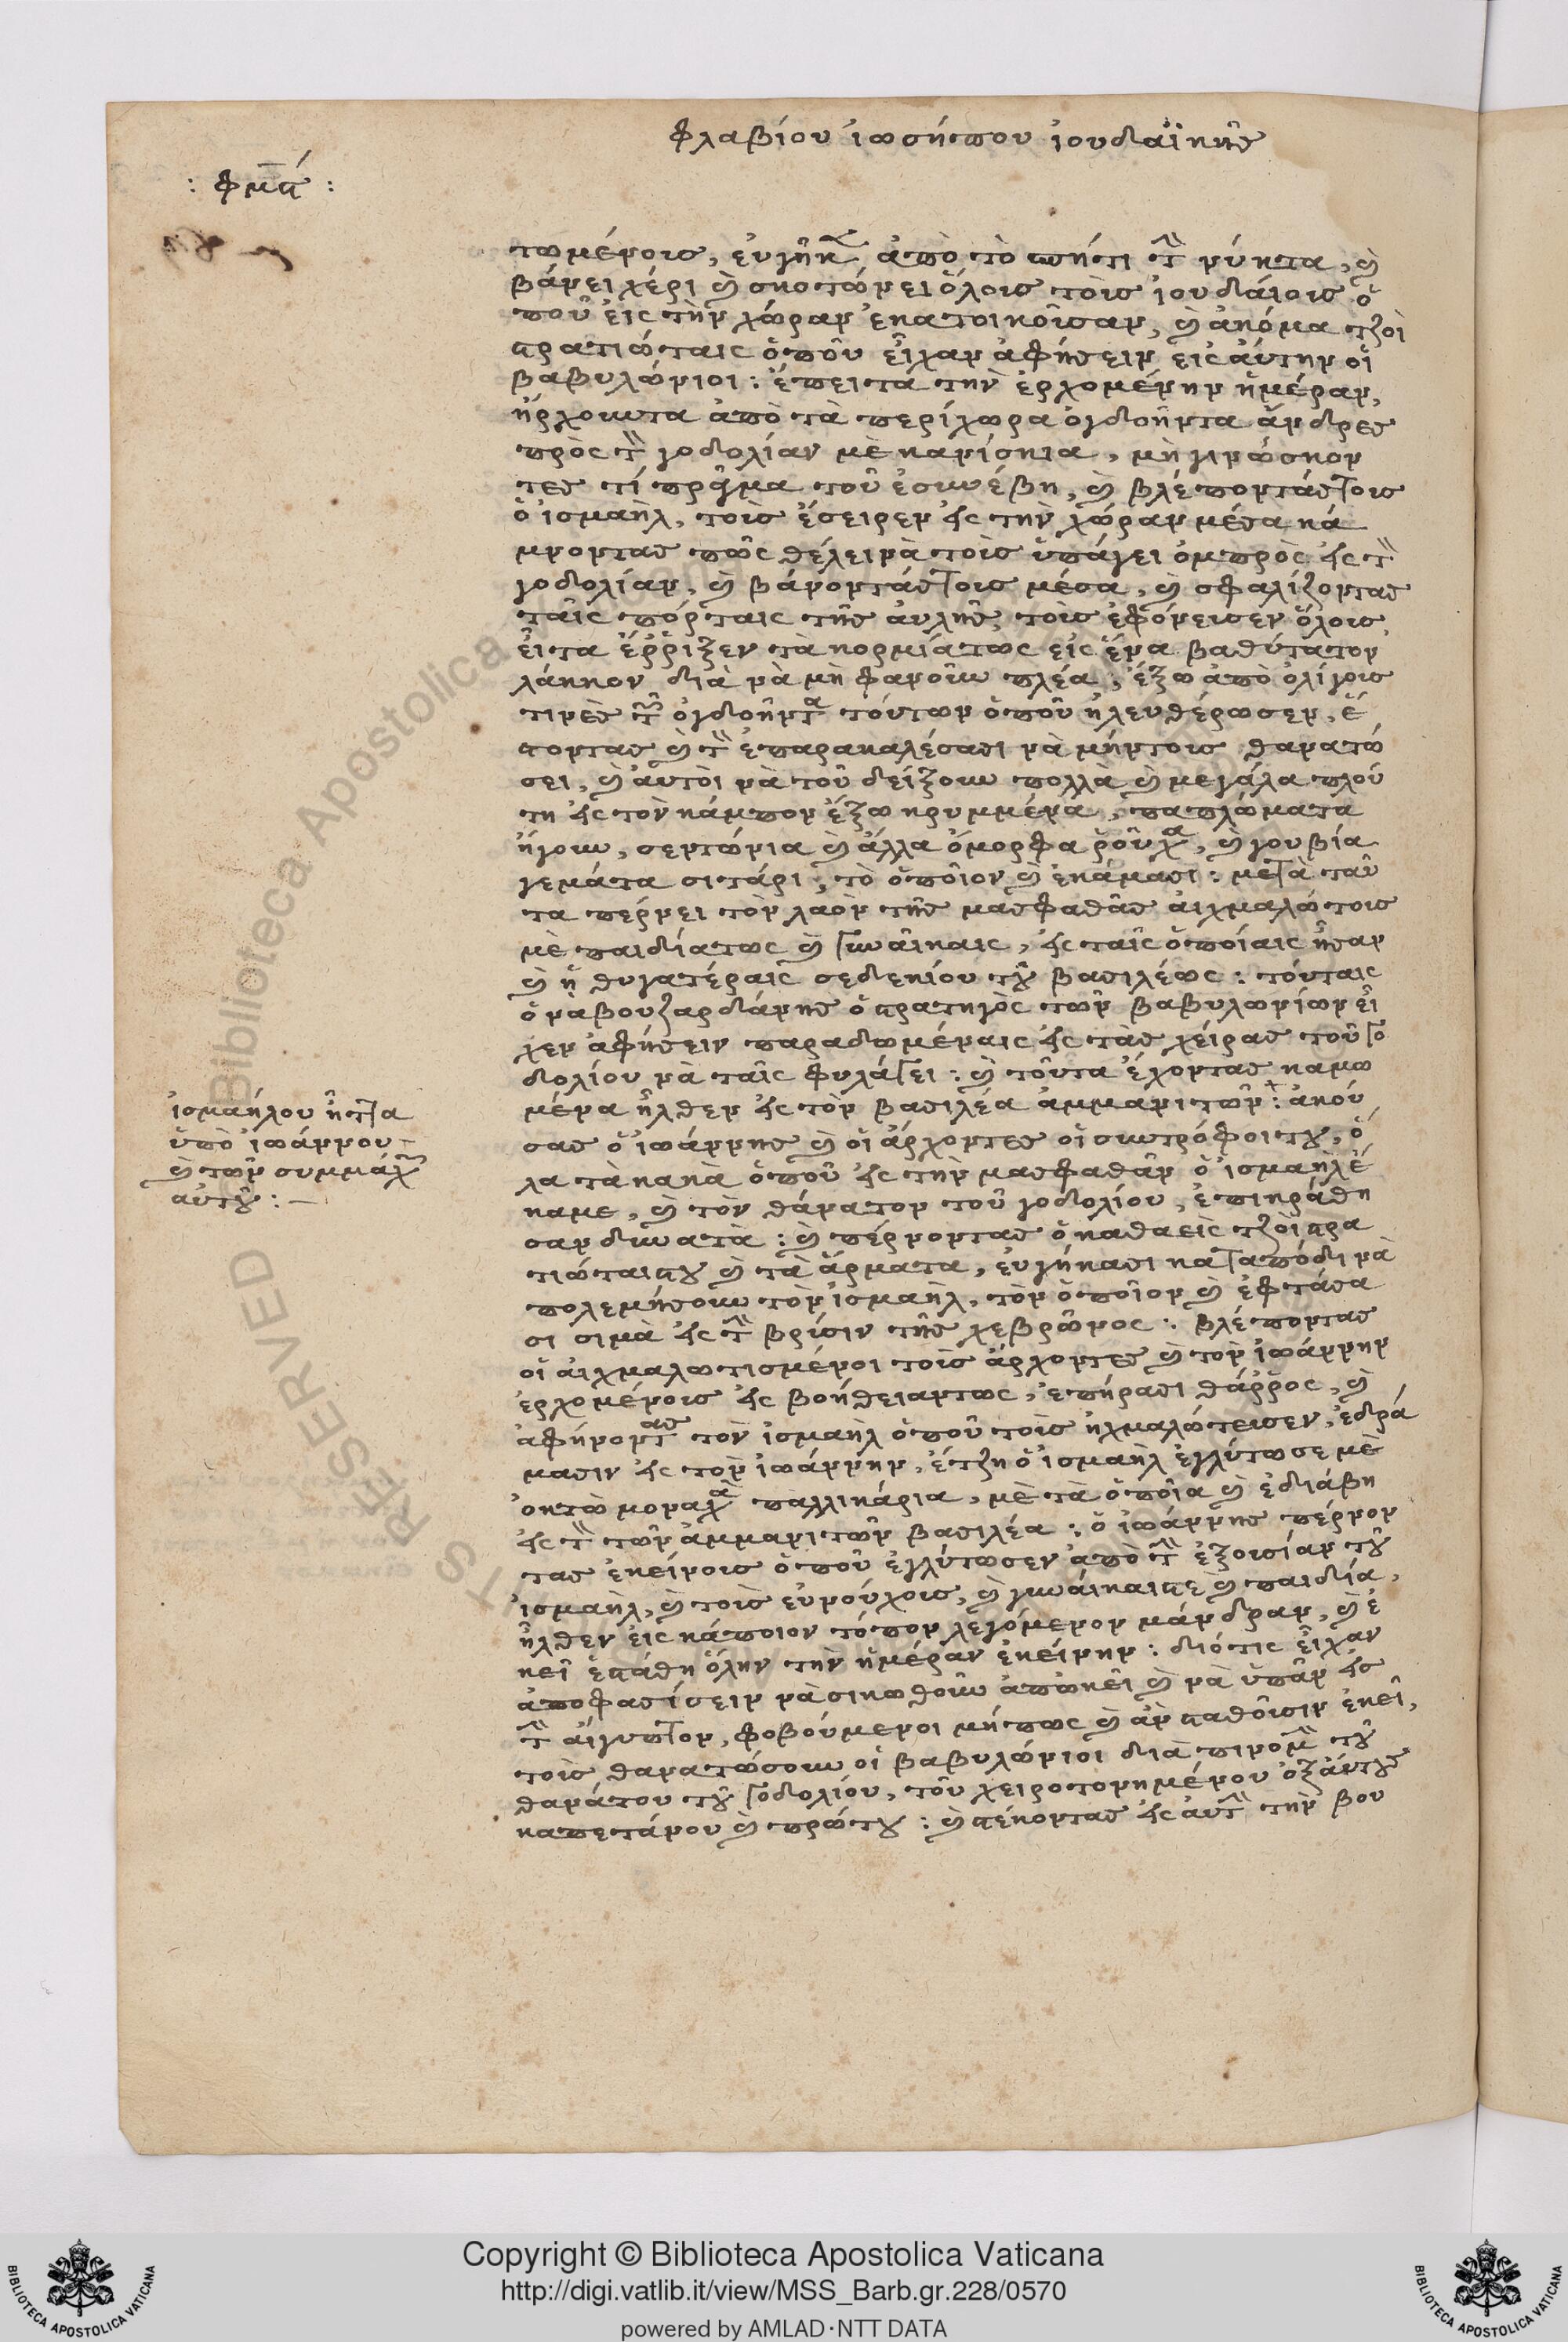 φλαβίου ἰωσήπου ἰουδαϊκῆς
: φμα :
τωμένοις, εὐγῆκεν ἀπὸ τὸ σπήτι τὴν νύκτα, καὶ
βάνει χέρι καὶ σκοτώνει ὅλοις τοῖς ἰουδαίοις ὁ
ποῦ εἰς τὴν χώραν ἐκατοικοῖσαν, καὶ ἀκόμα τζοὶ
στρατιώταις ὁποῦ εἶχαν ἀφήσειν εἰς αὐτὴν οἱ
βαβυλώνιοι : ἔπειτα τὴν ἐρχομένην ἡμέραν,
ἤρχουντα ἀπὸ τὰ περίχωρα ὀγδοῆντα ἄνδρες
πρὸς τὴν γοδολίαν μὲ κανίσκια, μὴ γινώσκον
τες τί πρᾶγμα τοῦ ἐσυνέβη, καὶ βλέποντάς τοις
ὁ ἰσμαὴλ, τοῖς ἔσειρεν εἰς τὴν χώραν μέσα κά
μνοντας πῶς θέλει νὰ τοῖς ὑπάγει ὀμπρὸς εἰς τὴν
γοδολίαν, καὶ βάνοντάς τοις μέσα, καὶ σφαλίζοντας
ταῖς πόρταις τῆς αὐλῆς, τοῖς ἐφόνεισεν ὅλοις,
εἶτα ἔῤῥιξεν τὰ κορμιάτως εἰς ἕνα βαθύτατον
λάκκον διὰ νὰ μὴ φανοῦν πλέα, ἔξω ἀπὸ ὀλίγοις
τινὲς τῶν ὀγδοῆντα τούτων ὁποῦ ἠλευθέρωσεν, ἔ
στοντας καὶ τὴν ἐπαρακαλέσασι νὰ μήντοις θανατώ
σει, καὶ αὐτοὶ νὰ τοῦ δείξουν πολλὰ καὶ μεγάλα πλού
τη εἰς τὸν κάμπον ἔξω κρυμμένα, παπλώματα
ἤγουν, σεντώνια καὶ ἄλλα ὄμορφα ῥοῦχα, καὶ γουβία
γεμάτα σιτάρι, τὸ ὁποῖον καὶ ἐκάμασι : μετὰ ταῦ
τα πέρνει τὸν λαὸν τῆς μασφαθᾶς αἰχμαλώτοις
μὲ παιδίατως καὶ γυναίκαις, εἰς ταῖς ὁποίαις ἦσαν
καὶ ἡ θυγατέραις σεδεκίου τοῦ βασιλέως : τούταις
ὁ ναβουζαρδάνης ὁ στρατηγὸς τῶν βαβυλωνίων εἶ
χεν ἀφήσειν παραδωμέναις εἰς τὰς χεῖρας τοῦ γο
δολίου νὰ ταῖς φυλάγει : καὶ τοῦτα ἔχοντας καμω
μένα ἦλθεν εἰς τὸν βασιλέα ἀμμανιτῶν : ἀκού
σας ὁ ἰωάννης καὶ οἱ ἄρχοντες οἱ συντρόφοι του, ὅ
λα τὰ κακὰ ὁποῦ εἰς τὴν μασφαθᾶν ὁ ἰσμαὴλ ἔ
καμε, καὶ τὸν θάνατον τοῦ γοδολίου, ἐπικράθη
σαν δυνατὰ : καὶ πέρνοντας ὁ καθαεὶς τζοὶ στρα
τιώταις του καὶ τὰ ἄρματα, εὐγήκασι καταπόδι νὰ
πολεμήσουν τὸν ἰσμαὴλ, τὸν ὁποῖον καὶ ἐφτάσα
σι σιμὰ εἰς τὴν βρύσιν τῆς χεβρῶνος : βλέποντας
οἱ αἰχμαλωτισμένοι τοῖς ἄρχοντες καὶ τὸν ἰωάννην
ἐρχομένοις εἰς βοήθειαντως, ἐπήρασι θάῤῥος, καὶ
ἀφήνοντας τὸν ἰσμαὴλ ὁποῦ τοῖς ἠχμαλώτεισεν, ἐδρά
μασιν εἰς τὸν ἰωάννην, ἔτζη ὁ ἰσμαὴλ ἐγλύτωσε μὲ
ὀκτὼ μοναχὰ παλλικάρια, μὲ τὰ ὁποῖα καὶ ἐδιάβη
εἰς τὴν τῶν ἀμμανιτῶν βασιλέα : ὁ ἰωάννης πέρνον
τας ἐκείνοις ὁποῦ ἐγλύτωσεν ἀπὸ τὴν ἐξοισίαν τοῦ
ἰσμαὴλ, καὶ τοῖς εὐνούχοις, καὶ γυναίκαις τε καὶ παιδία,
ἦλθεν εἰς κάποιον τόπον λεγόμενον μάνδραν, καὶ ἐ
κεῖ ἐστάθη ὅλην τὴν ἡμέραν ἐκείνην : διότις εἶχαν
ἀποφασίσειν νὰ σικωθοῦν ἀπωκεῖ καὶ νὰ ὑπᾶν εἰς
τὴν αἴγυπτον, φοβούμενοι μήπως καὶ ἂν σταθοῖσιν ἐκεῖ,
τοῖς θανατώσουν οἱ βαβυλώνιοι διὰ πινομὴν τοῦ
θανάτου τοῦ γοδολίου, τοῦ χειροτονημένου ὀξάντους
καπετάνου καὶ πρώτου : καὶ στέκοντας εἰς αὐτὴν τὴν βου
ἰσμαήλου ἧττα
ὑπὸ ἰωάννου
καὶ τῶν συμμάχων
αὐτοῦ : –
Copyright © Biblioteca Apostolica Vaticana
http://digi.vatlib.it/view/MSS_Barb.gr.228/0570
powered by AMLAD·NTT DATA
BIBLIOTECA APOSTOLICA VATICANA
BIBLIOTECA APOSTOLICA VATICANA